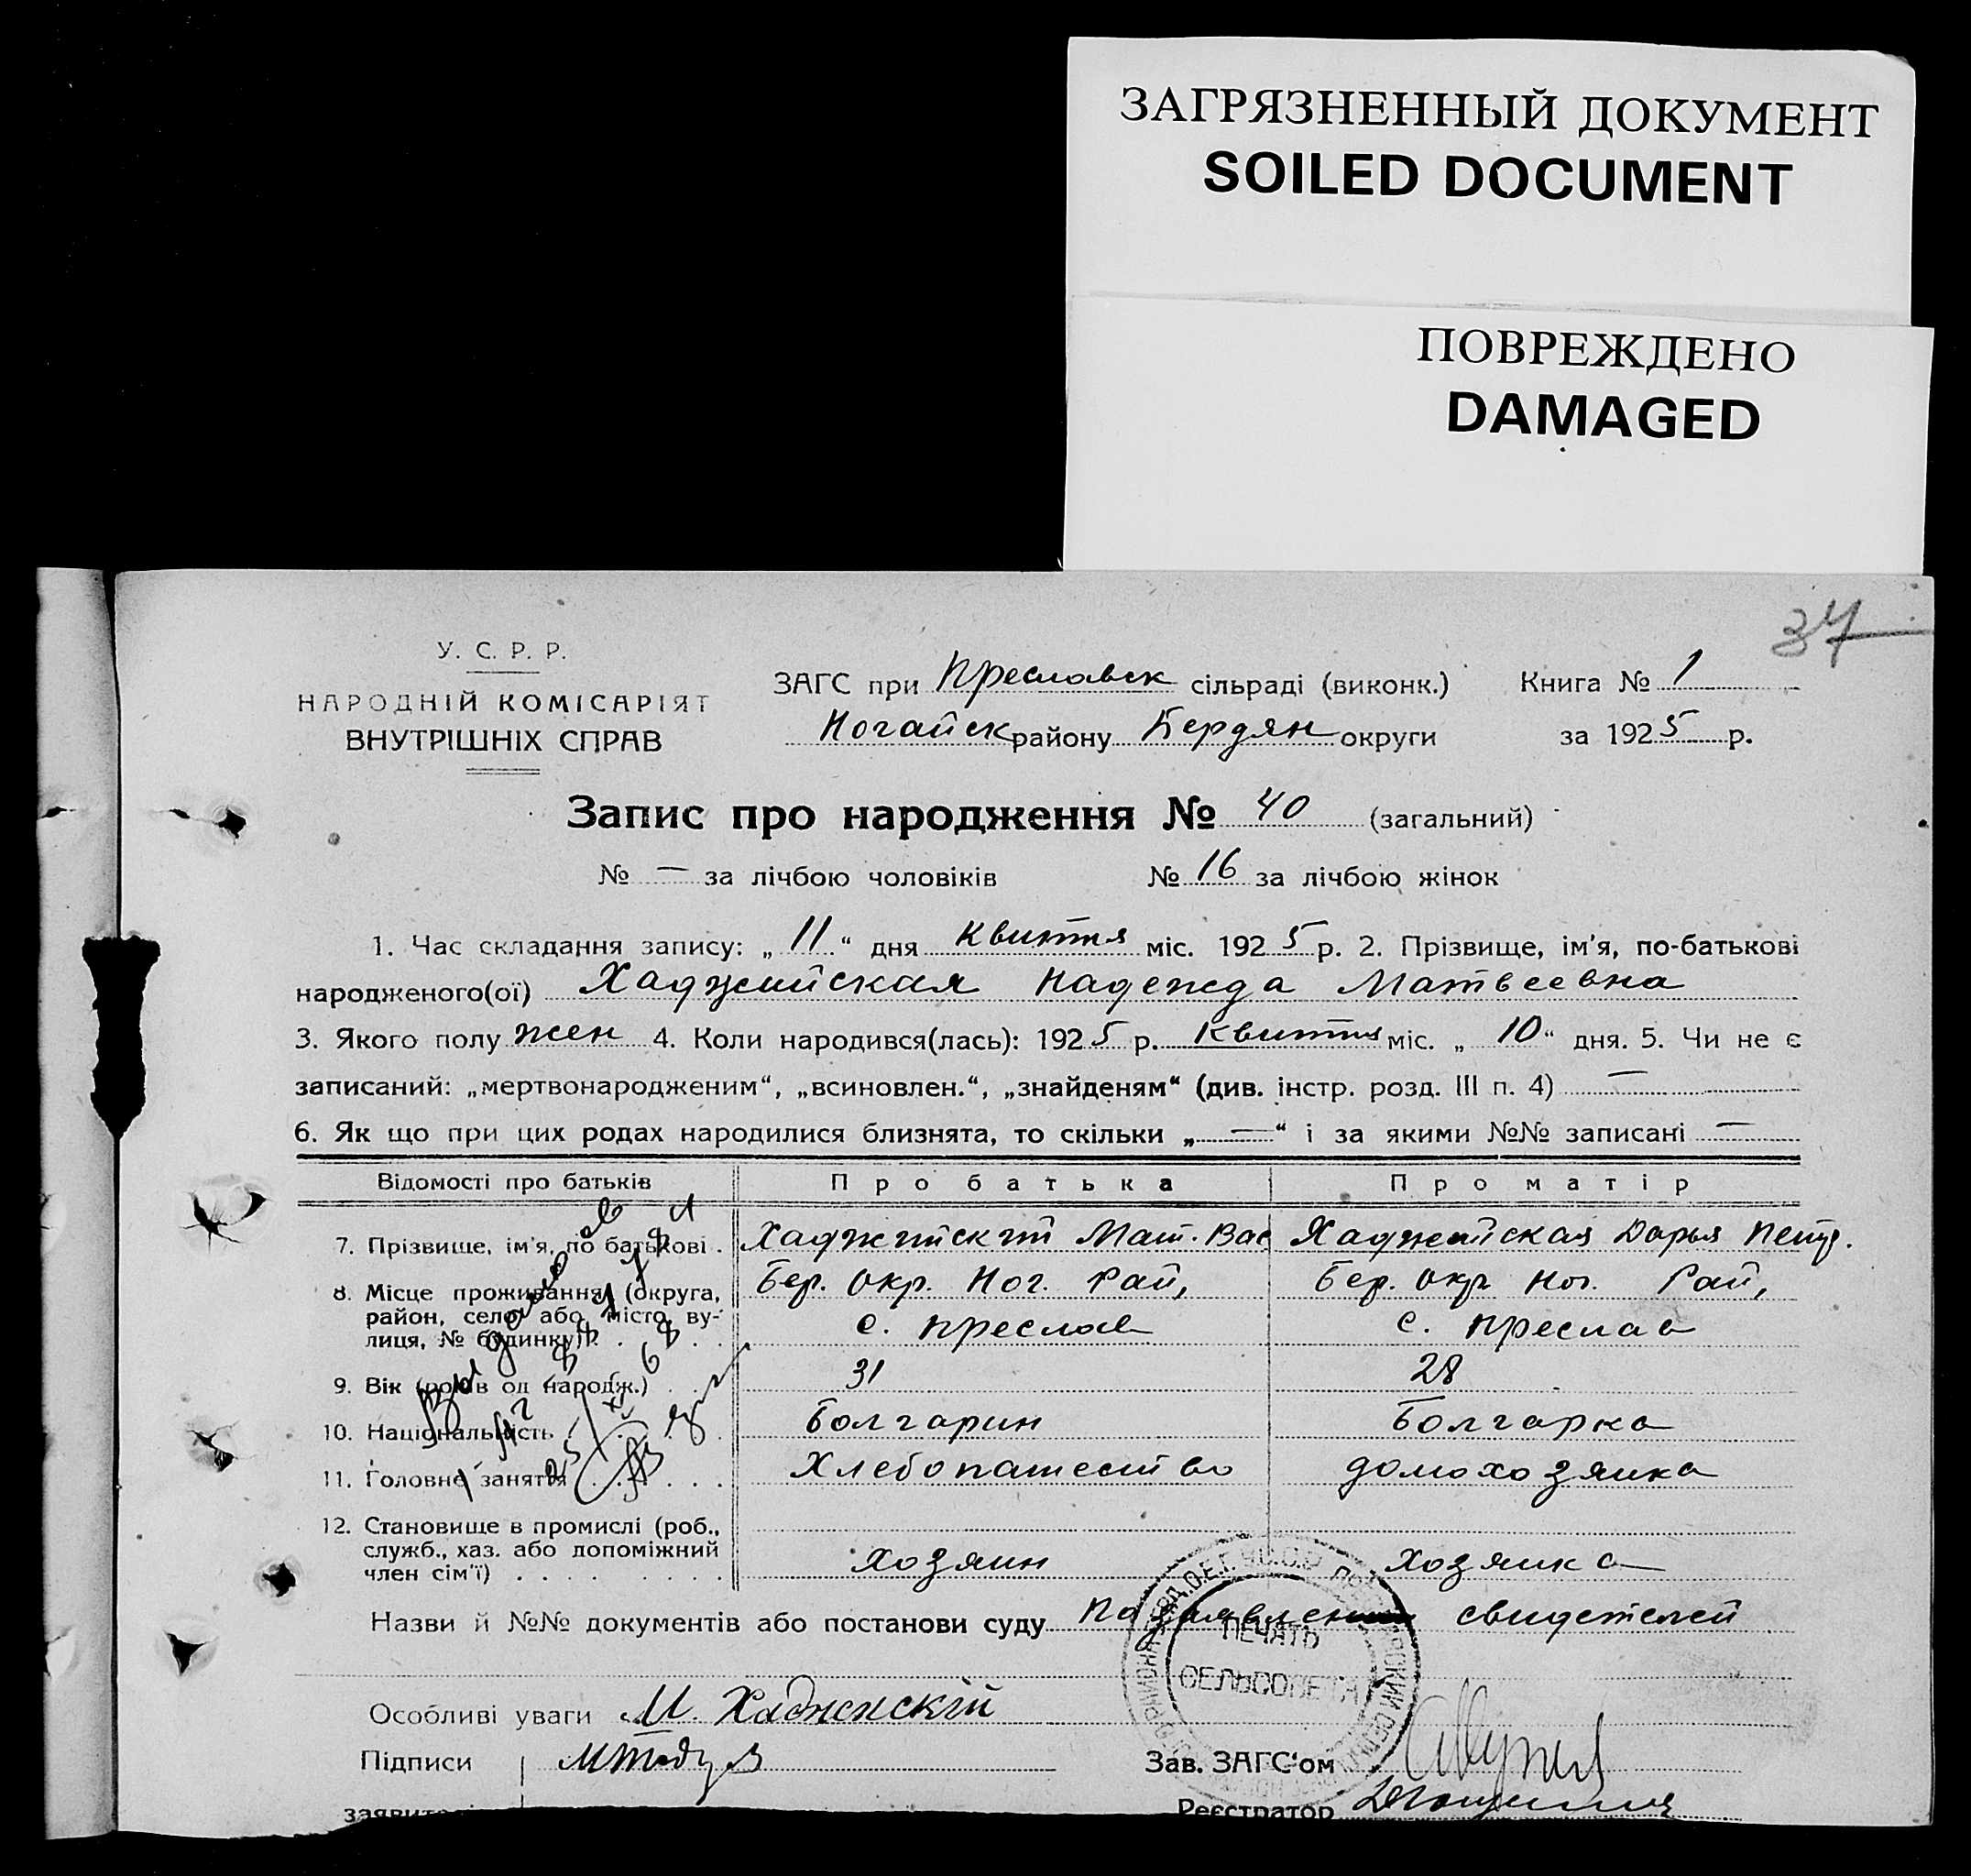 ЗАГРЯЗНЕННЫЙ ДОКУМЕНТ
SOILED DOCUMENT
ПОВРЕЖДЕНО
DAMAGED
37
У. С. Р. Р.
НАРОДНІЙ КОМІСАРІЯТ
ВНУТРІШНІХ СПРАВ
ЗАГС при Преславск сільраді (виконк.)
Ногайск району Бердян округи
Книга № 1
за 1925 р.
Запис про народження № 40 (загальний)
№ — за лічбою чоловіків № 16 за лічбою жінок
1. Час складання запису: „ 11 “ дня Квиття міс. 1925 р. 2. Прізвище, ім'я, по-батькові
народженого(ої) Хаджийская Надежда Матвеевна
3. Якого полу жен 4. Коли народився(лась): 1925 р. Квиття міс. „ 10 “ дня. 5. Чи не є
записаний: „мертвонародженим“, „всиновлен.“, „знайденям“ (див. інстр. розд. III п. 4) —
6. Як що при цих родах народилися близнята, то скільки „ — “ і за якими №№ записані —
Відомості про батьків Про батька Про матір
7. Прізвище, ім'я, по батькові . Хаджийский Мат. Вас Хаджийская Дарья Петр.
8. Місце проживання (округа, Бер. Окр. Ног. Рай, Бер. Окр Ног. Рай,
район, село або місто, ву-
лиця, № будинку) с. Преслав с. Преслав
9. Вік (років од народж.) 31 28
10. Національність Болгарин Болгарка
11. Головне заняття Хлебопашество домохозяйка
12. Становище в промислі (роб.,
служб., хаз. або допоміжний
член сім'ї) Хозяин Хозяйка
Назви й №№ документів або постанови суду По заявлению свидетелей
ПЕЧАТЬ
СЕЛЬСОВЕТА
Особливі уваги М. Хаджийскій
Підписи
Зав. ЗАГС'ом
заявителів
Реєстратор